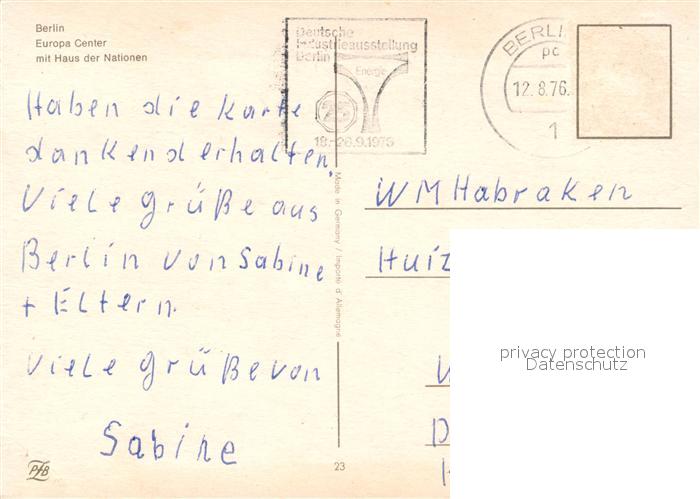 Berlin
Europa Center
mit Haus der Nationen
Haben die Karte
dankend erhalten.
Viele Grüße aus
Berlin von Sabine
+ Eltern.
Viele Grüße von
Sabine
PfB
Made in Germany / Importé d'Allemagne
23
Deutsche
Industrieausstellung
Berlin
Energie
18.-26.9.1976
BERLI
12.8.76.
1
WM Habraken
Huiz
privacy protection
Datenschutz